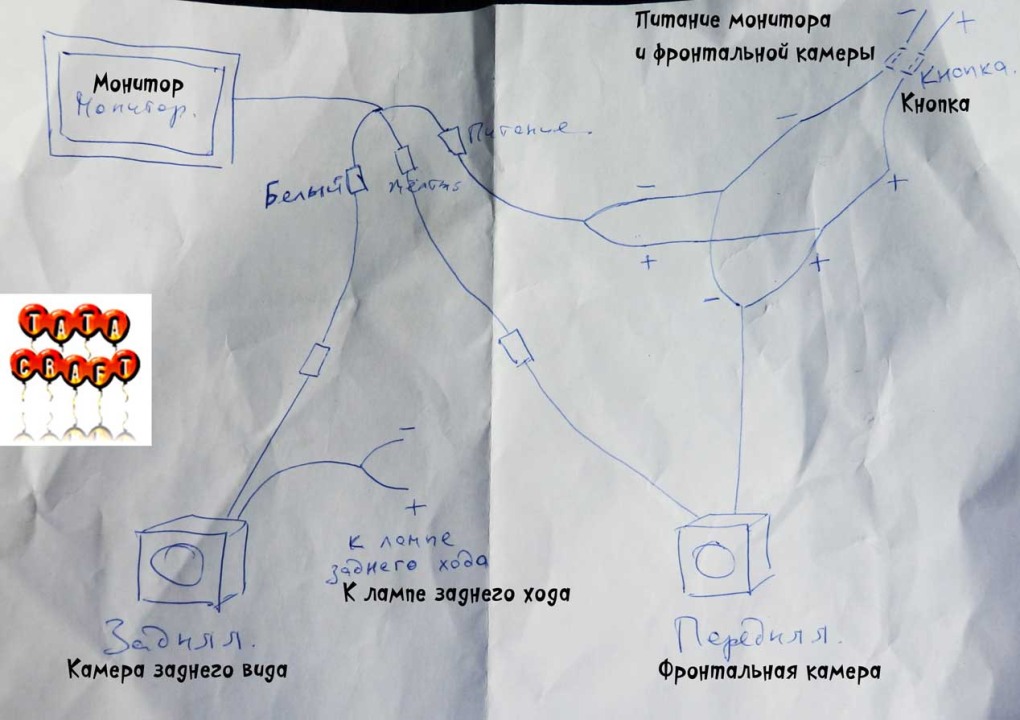 Питание монитора
и фронтальной камеры
- +
Кнопка.
Кнопка
Монитор
Монитор.
Питание.
-
Белый
Желтый
-
+
+
+
-
TATA
CRAFT
-
+
к лампе
заднего хода
К лампе заднего хода
Задняя.
Камера заднего вида
Передняя.
Фронтальная камера